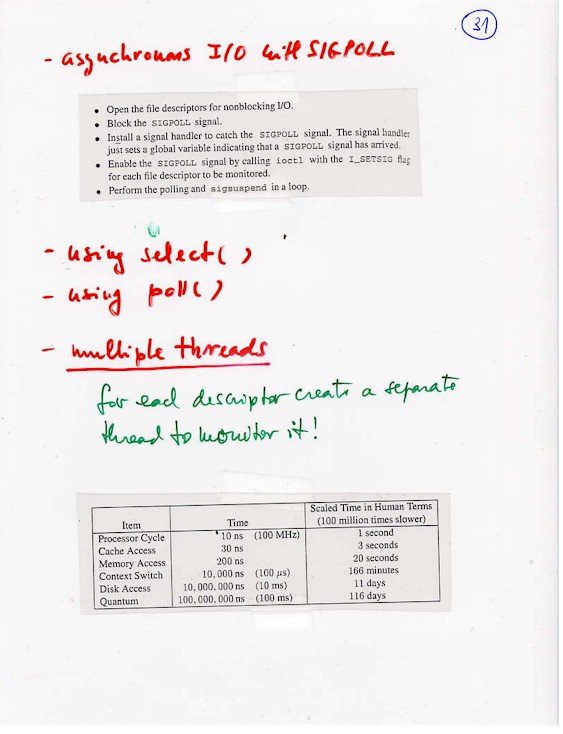 31
- asynchronous I/O with SIGPOLL
• Open the file descriptors for nonblocking I/O.
• Block the SIGPOLL signal.
• Install a signal handler to catch the SIGPOLL signal. The signal handler
just sets a global variable indicating that a SIGPOLL signal has arrived.
• Enable the SIGPOLL signal by calling ioctl with the I_SETSIG flag
for each file descriptor to be monitored.
• Perform the polling and sigsuspend in a loop.
- using select( )
- using poll( )
- multiple threads
for each descriptor create a separate
thread to monitor it!
Scaled Time in Human Terms
Item Time (100 million times slower)
Processor Cycle 10 ns (100 MHz) 1 second
Cache Access 30 ns 3 seconds
Memory Access 200 ns 20 seconds
Context Switch 10,000 ns (100 μs) 166 minutes
Disk Access 10,000,000 ns (10 ms) 11 days
Quantum 100,000,000 ns (100 ms) 116 days